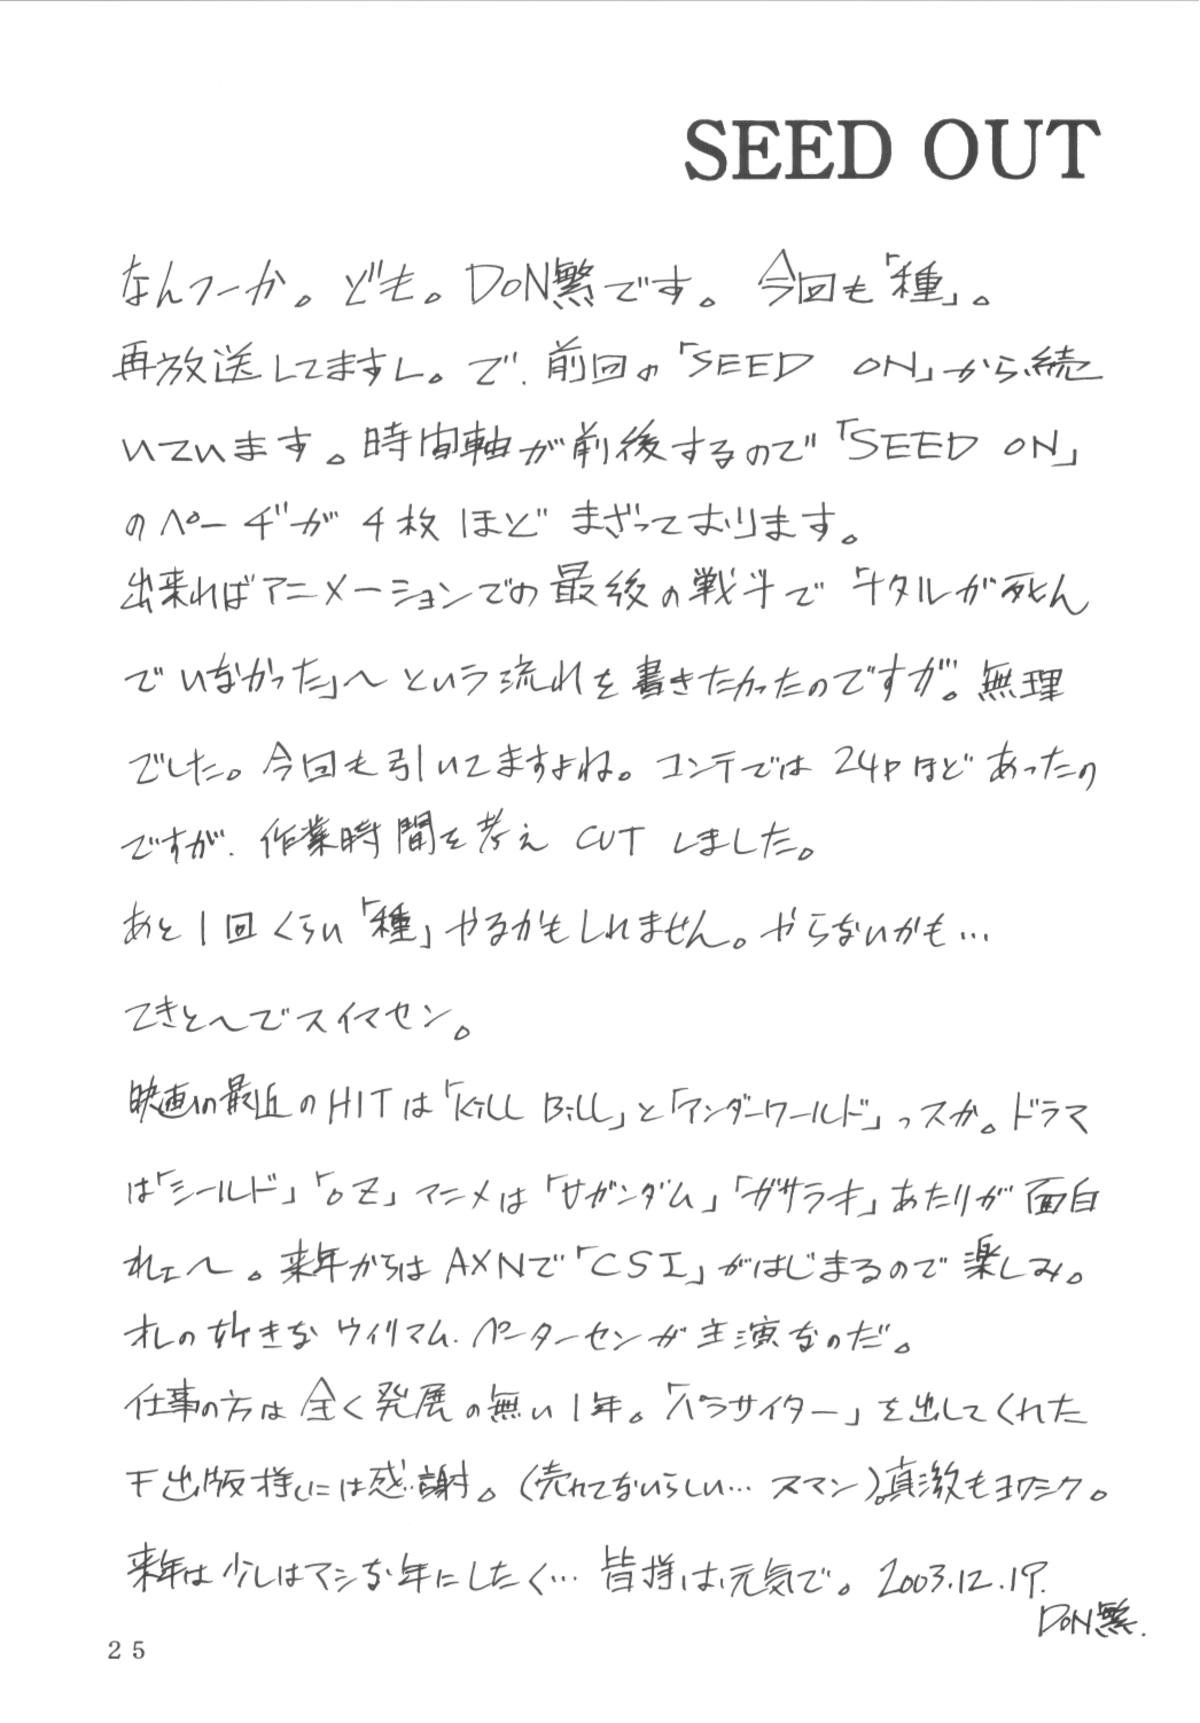 SEED OUT
なんつーか。ども。DON繁です。 今回も「種」。
再放送してますし。で、前回の「SEED ON」から続
いています。時間軸が前後するので「SEED ON」
のページが4枚ほどまざっております。
出来ればアニメーションでの最後の戦斗で「キタルが死ん
でいなかった」〜という流れを書きたかったのですが。無理
でした。今回も引いてますよね。コンテでは24Pほどあったの
ですが、作業時間を考えCUTしました。
あと1回くらい「種」やるかもしれません。やらないかも…
てきと〜でスイマセン。
映画の最近のHITは「Kill Bill」と「アンダーワールド」っスか。ドラマ
は「シールド」「OZ」アニメは「ガンダム」「ガサラキ」あたりが面白
れェ〜。来年からはAXNで「CSI」がはじまるので楽しみ。
オレの好きなウイリアム、ペーターセンが主演なのだ。
仕事の方は全く発展の無い1年。「パラサイター」を出してくれた
出版様には感謝。(売れてないらしい… スマン)。真激もヨロシク。
来年は少しはマシな年にしたく… 皆様は元気で。2003.12.19.
DON繁.
25